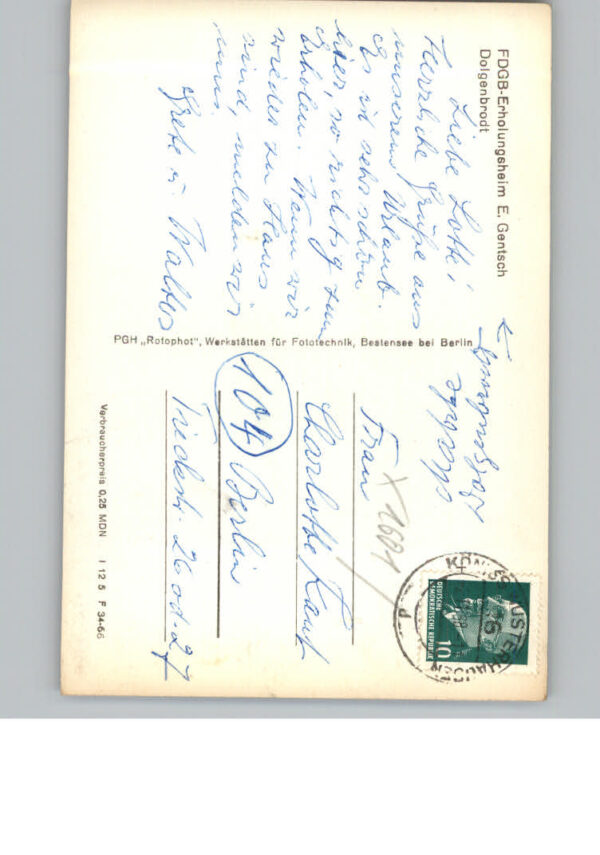 FDGB-Erholungsheim E. Gentsch
Dolgenbrodt
Liebe Lotti
Herzliche Grüße aus
unserem Urlaub.
Es ist sehr schön
hier, so richtig zum
Erholen. Wenn wir
wieder zu Haus
sind, melden wir
uns.
Grete u. Walter
PGH „Rotophot“, Werkstätten für Fototechnik, Bestensee bei Berlin
Frau
Charlotte Kauf
104 Berlin
Friedrich. 26 od. 27
X 1601
KÖNIGS WUSTERHAUSEN
DEUTSCHE
DEMOKRATISCHE REPUBLIK
10
Verbraucherpreis 0,25 MDN I 12 5 F 34-66